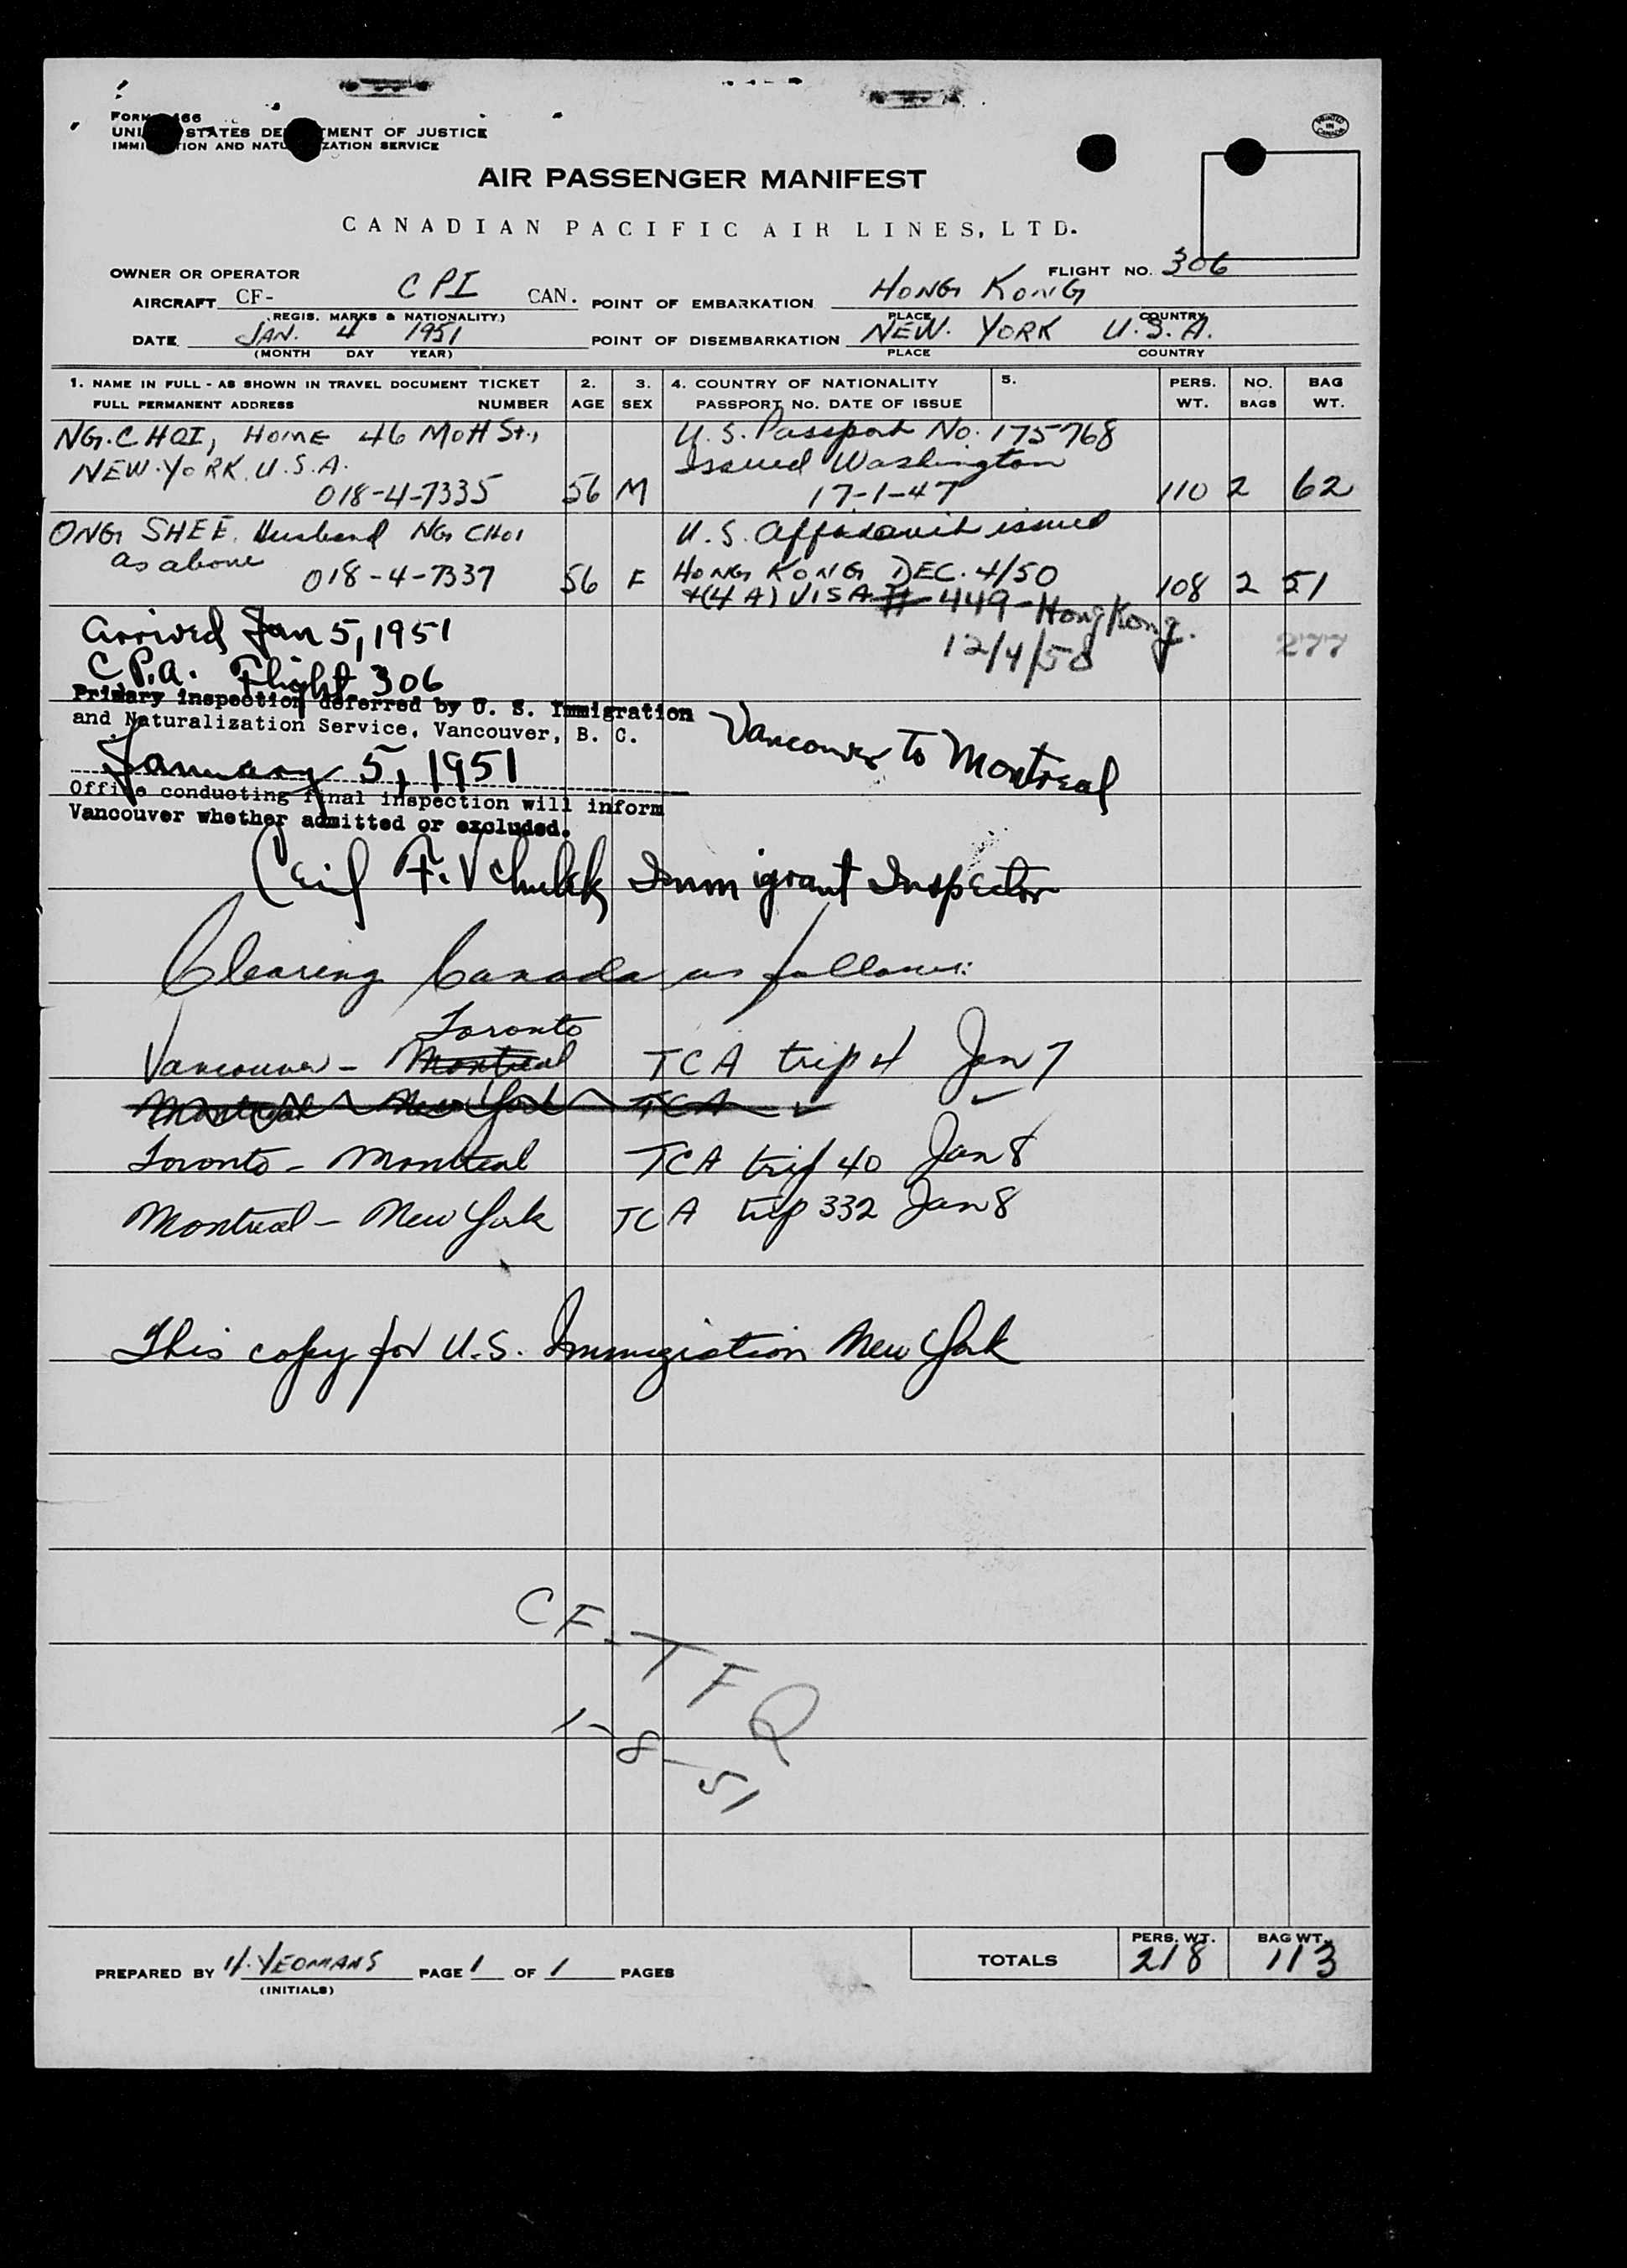 PRINTED IN CANADA
UNI STATES DE MENT OF JUSTICE
IMMI TION AND NATU ZATION SERVICE
AIR PASSENGER MANIFEST
CANADIAN PACIFIC AIR LINES, LTD.
OWNER OR OPERATOR FLIGHT NO. 306
AIRCRAFT CF- CPI CAN. POINT OF EMBARKATION HONG KONG
REGIS. MARKS & NATIONALITY) PLACE COUNTRY
DATE JAN. 4 1951 POINT OF DISEMBARKATION NEW. YORK U.S.A.
(MONTH DAY YEAR) PLACE COUNTRY
1. NAME IN FULL - AS SHOWN IN TRAVEL DOCUMENT TICKET 2. 3. 4. COUNTRY OF NATIONALITY 5. PERS. NO. BAG
FULL PERMANENT ADDRESS NUMBER AGE SEX PASSPORT No. DATE OF ISSUE WT. BAGS WT.
NG. CHOI, HOME 46 Mott St., U.S. Passport No. 175768
NEW. YORK. U.S.A. Issued Washington
018-4-7335 56 M 17-1-47 110 2 62
ONG SHEE. Husband NG CHOI U.S. Affadavit issued
as above HONG KONG DEC. 4/50
018-4-7337 56 F +(4A) VISA # 449-Hong Kong. 108 2 51
12/4/50 277
Arrived Jan 5, 1951
C.P.A. Flight 306
Primary inspection deferred by U. S. Immigration
and Naturalization Service, Vancouver, B. C.
Vancouver to Montreal
January 5, 1951
Office conducting final inspection will inform
Vancouver whether admitted or excluded.
F. Immigrant Inspector
Clearing Canada as follows:
Toronto
Vancouver - Montreal TCA trip 4 Jan 7
Montreal - New York TCA
Toronto - Montreal TCA trip 40 Jan 8
Montreal - New York TCA trip 332 Jan 8
This copy for U.S. Immigration New York
CF-TFQ
1-8-51
PERS. WT. BAG WT.
TOTALS 218 113
PREPARED BY H. YEOMANS PAGE 1 OF 1 PAGES
(INITIALS)